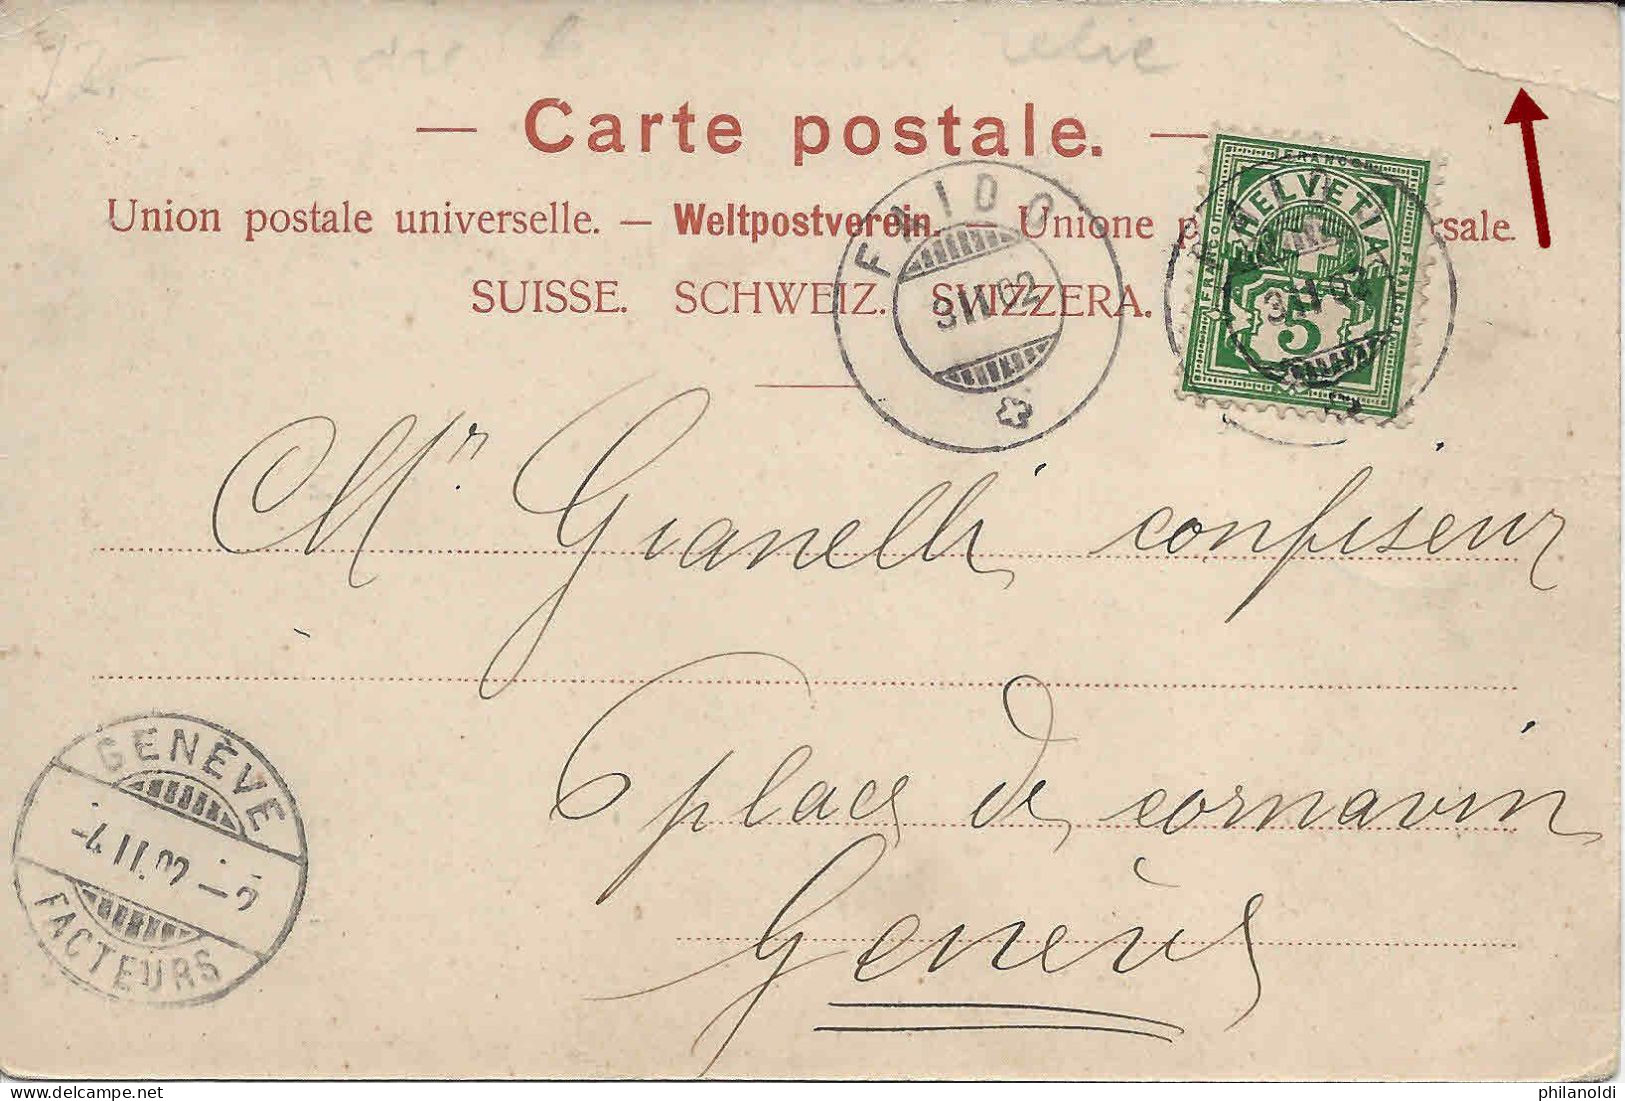 12.-
— Carte postale. —
Union postale universelle. — Weltpostverein. — Unione p rsale.
SUISSE. SCHWEIZ. SVIZZERA.
FAIDO
3 II 02
FRANCO
HELVETIA
FRANCO
FRANCO
3 II 02
5
Mr Gianelli confiseur
place de cornavin
Genève
GENÈVE
-4.II.02 -2
FACTEURS
delcampe.net
philanoldi